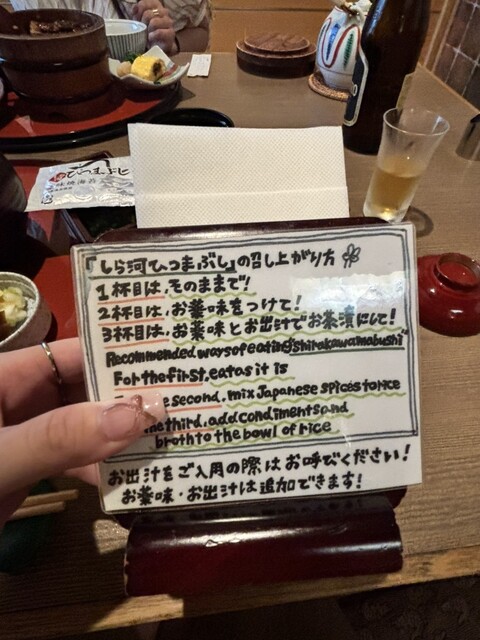 ひつまぶし
『しら河ひつまぶし』の召し上がり方
1杯目は、そのままで!
2杯目は、お薬味をつけて!
3杯目は、お薬味とお出汁でお茶漬にして!
Recommended ways of eating "shirakawamabushi"
For the first, eat as it is
second, mix Japanese spices to rice
the third, add condiments and
broth to the bowl of rice
お出汁をご入用の際はお呼びください!
お薬味・お出汁は追加できます!